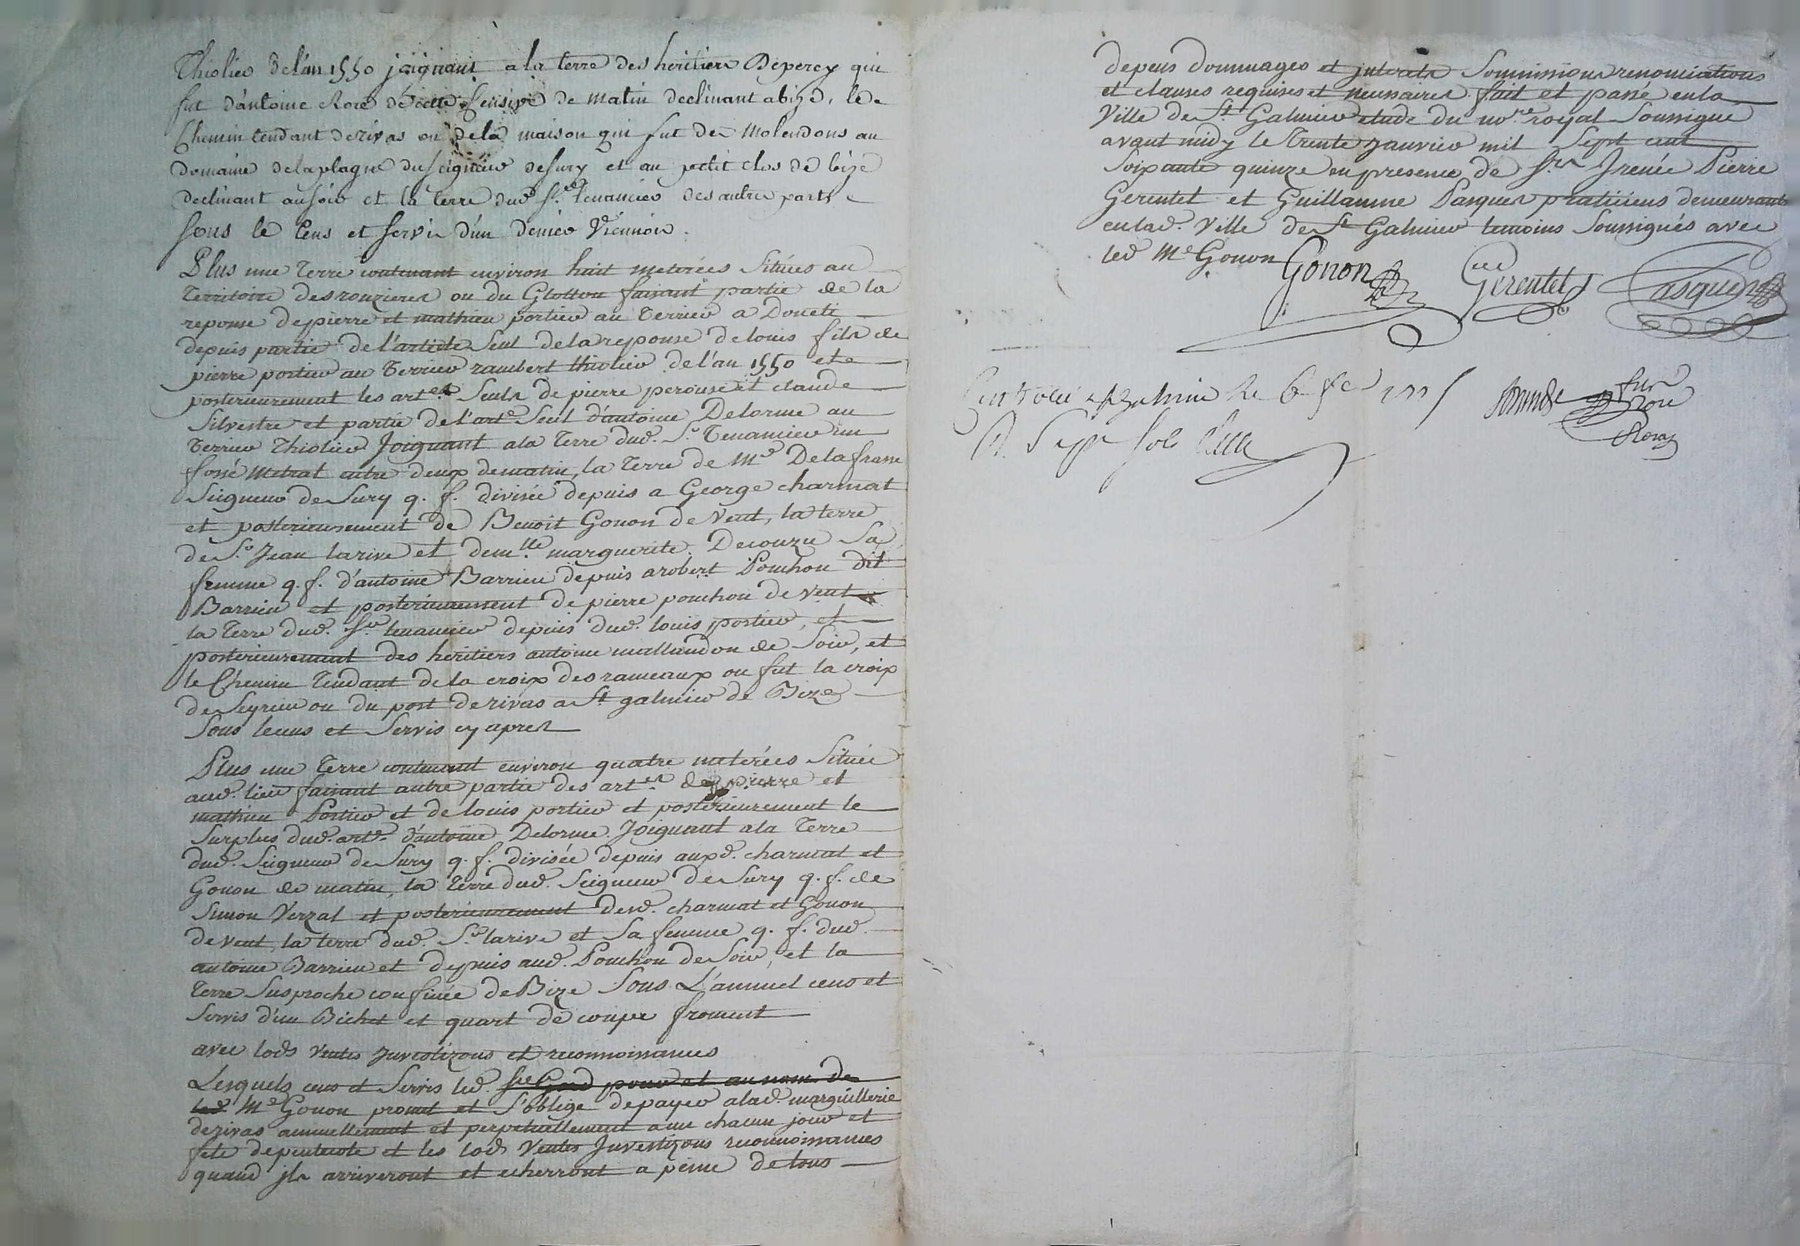 Thiolier de l'an 1550 joignant a la terre des heritiers Deperey qui
fut d'antoine Roie de cette Censive de matin declinant a bize, le
Chemin tendant de rivas ou de la maison qui fut des Molendons au
domaine de la plagne du seigneur de sury et au petit clos de bize
declinant au soir et la terre dud. Sr. tenancier des autre parts
sous le Cens et servis d'un denier Viennois.
Plus une Terre contenant environ huit meterées Situées au
Territoire des rouzieres ou du Glotton faisant partie de la
reponse de pierre et mathieu portier au Terrier a Doneti
depuis partie de l'article Seul de la reponse de louis fils de
pierre portier au Terrier rambert thiolier de l'an 1550 et
posterieurement les artes. Seuls de pierre perouse et claude
Silvestre et partie de l'arte. Seul d'antoine Delorme au
Terrier Thiolier Joignant a la Terre dud. Sr. Tenancier un
fossé Metral entre deux de matin, la Terre de Mr. Delafrasse
Seigneur de Sury q. f. divisée depuis a George charmat
et posterieurement de Benoit Gonon de Vent, la terre
de Sr. Jean larive et demlle. marguerite Decouzu Sa
femme q. f. d'antoine Barrieu depuis a robert Ponchon dit
Barrieu et posterieurement de pierre ponchon de Vent
la Terre dud. Sr. tenancier depuis dud. louis portier, et
posterieurement des heritiers antoine mallandon de Soir, et
le Chemin Tendant de la croix des rameaux ou fut la croix
de Seyrieu ou du port de rivas a St galmier de Bize
Sous le cens et Servis cy apres
Plus une Terre contenant environ quatre meterées Située
aud. lieu faisant autre partie des artes. de pierre et
mathieu Portier et de louis portier et posterieurement le
Surplus dud. arte. d'antoine Delorme Joignant a la Terre
dud. Seigneur de Sury q. f. divisée depuis auxd. charmat et
Gonon de matin, la Terre dud. Seigneur de Sury q. f. de
Simon Verzal et posterieurement desd. charmat et Gonon
de Vent, la terre dud. Sr. larive et Sa femme q. f. dud.
antoine Barrieu et depuis aud. Ponchon de Soir, et la
Terre Susproche confinée de Bize Sous L'annuel cens et
Servis d'un Bichet et quart de coupe froment
avec lods Ventes Investizons et reconnoissances
Lesquels cens et Servis led. pour et au nom de
led. Me Gonon promet et S'oblige de payer a lad. marguillerie
de rivas annuellement et perpetuellement a une chacun jour et
fete de pentecote et les lods Ventes Investizons reconnoissances
quand ils arriveront et echerront a peine de tous
depens dommages et interets Sommissions renonciations
et clauses requises et necessaires fait et passé en la
Ville de St Galmier etude du nore. royal Soussigné
avant midy le trente janvier mil Sept cent
Soixante quinze en presence de Srs Irenée Pierre
Gerentet et Guillaume Pasquer praticiens demeurants
en lad. Ville de St Galmier temoins Soussignés avec
led. Me Gonon Gonon Gerentet Pasquer
Controlé a St galmier le 6 fer 1775
R. Sept sols